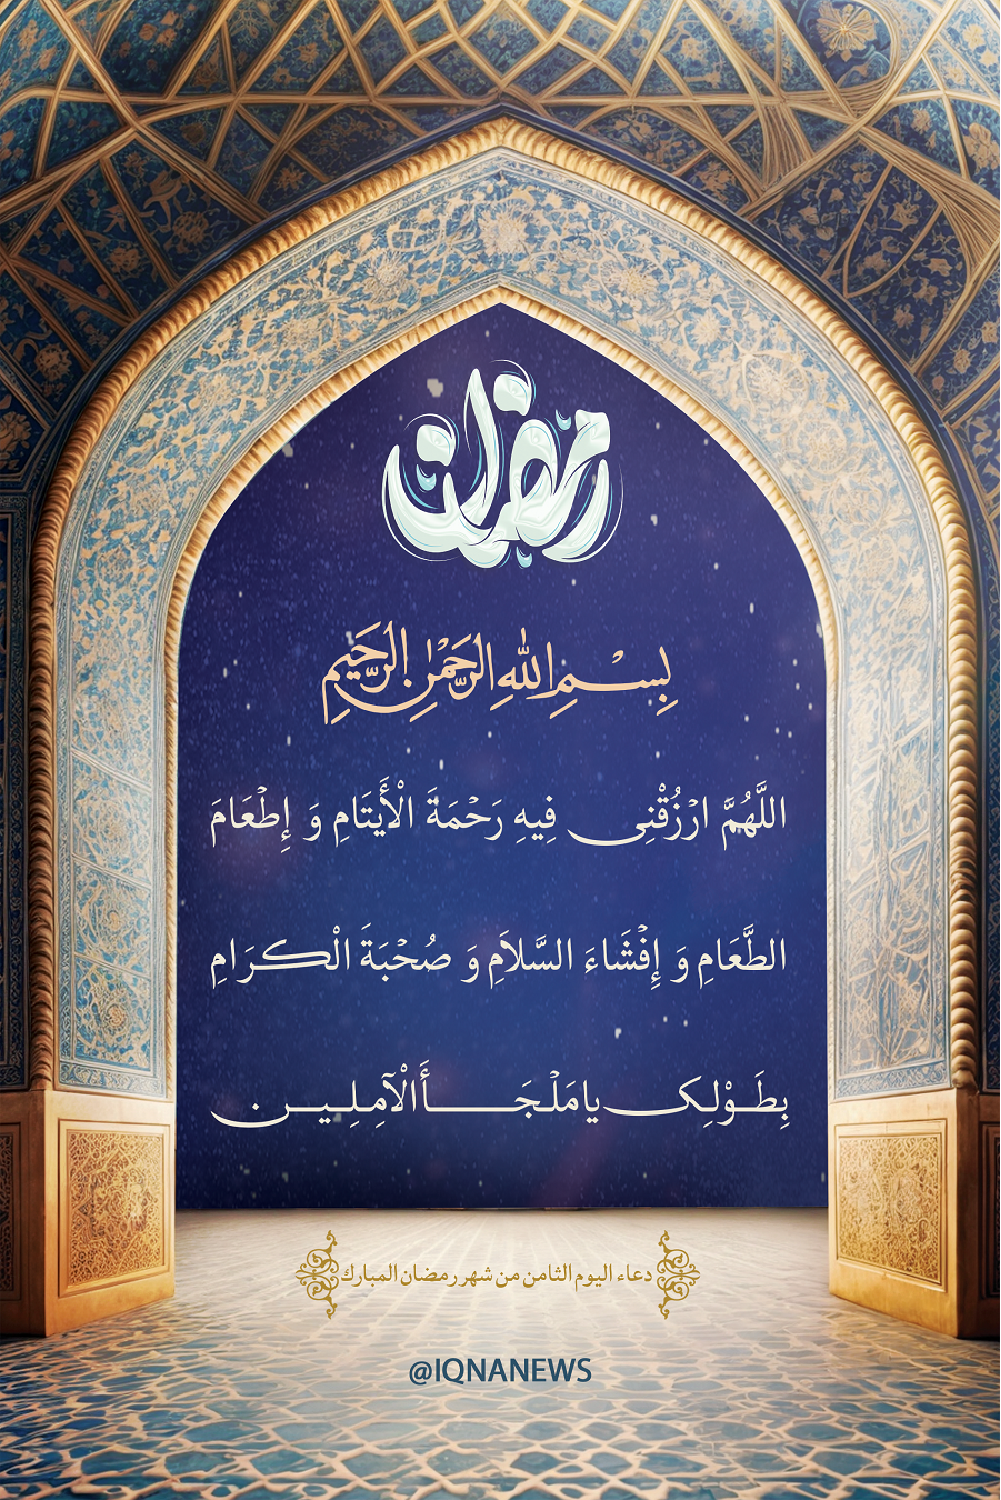 رمضان
بِسْمِ اللهِ الرَّحْمٰنِ الرَّحِيمِ
اللَّهُمَّ ارْزُقْنِي فِيهِ رَحْمَةَ الْأَيْتَامِ وَ إِطْعَامَ
الطَّعَامِ وَ إِفْشَاءَ السَّلاَمِ وَ صُحْبَةَ الْكَرَامِ
بِطَوْلِكَ يا مَلْجَأَ الْآمِلِين
دعاء اليوم الثامن من شهر رمضان المبارك
@IQNANEWS